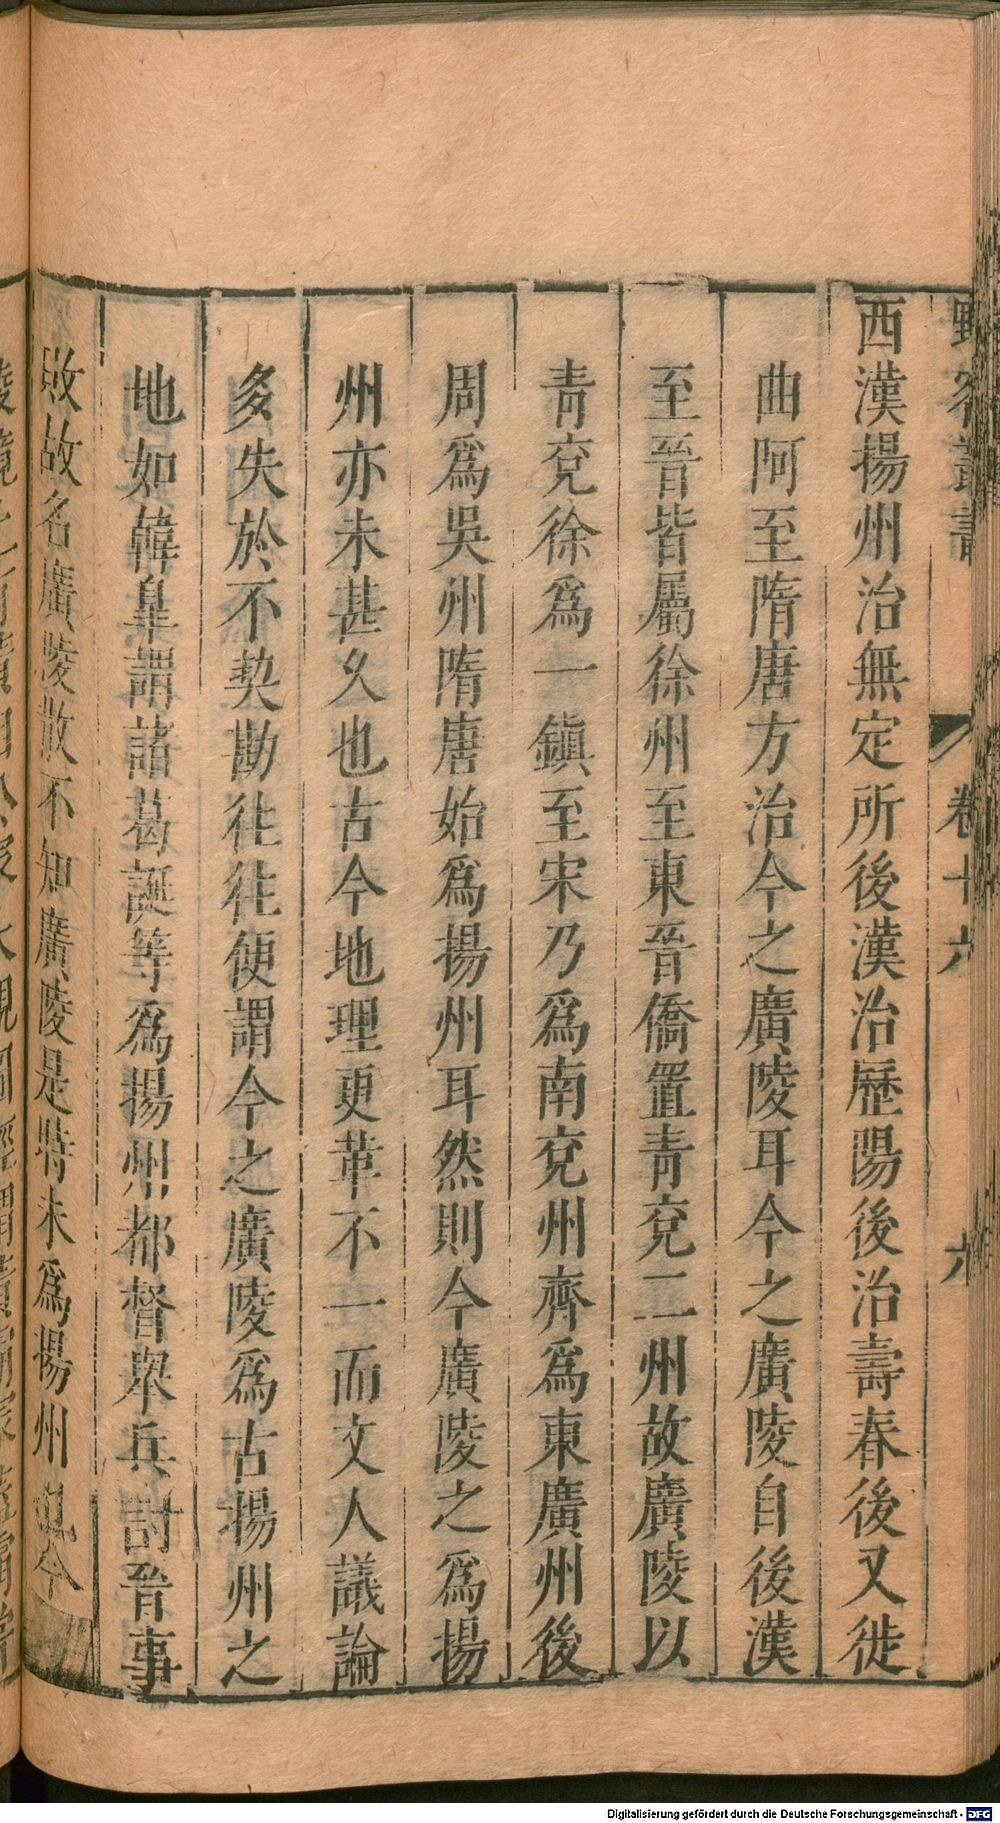 野客叢書
卷十六
六
西漢揚州治無定所後漢治歷陽後治壽春後又徙
曲阿至隋唐方治今之廣陵耳今之廣陵自後漢
至晉皆屬徐州至東晉僑置青兗二州故廣陵以
青兗徐爲一鎮至宋乃爲南兗州齊爲東廣州後
周爲吳州隋唐始爲揚州耳然則今廣陵之爲揚
州亦未甚久也古今地理更革不一而文人議論
多失於不契勘往往便謂今之廣陵爲古揚州之
地如韓皐謂諸葛誕等爲揚州都督舉兵討晉事
敗故名廣陵散不知廣陵是時未爲揚州也今
Digitalisierung gefördert durch die Deutsche Forschungsgemeinschaft - DFG